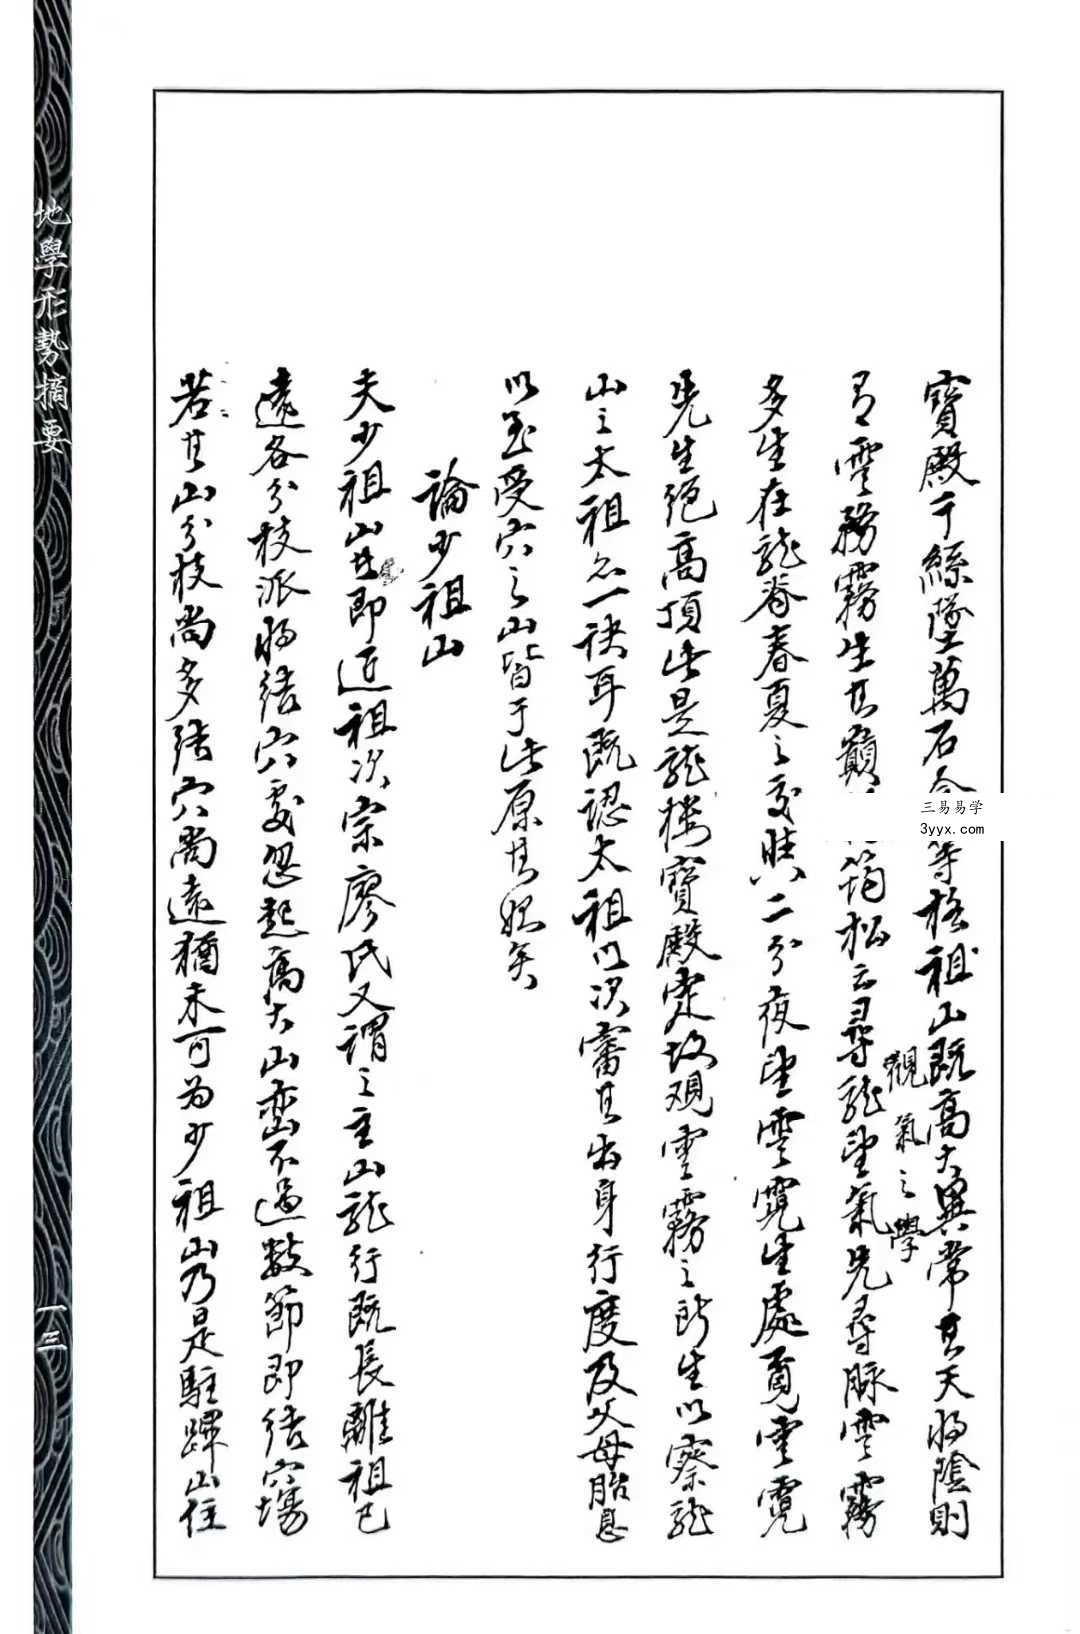 寶殿千絲墜萬石 等格祖山既高大異常其天將陰則
有雲務霧生其巔 筠松云尋龍望氣先尋脉雲霧
觀氣之學
多生在龍脊春夏之交與二分夜望雲霓生處覓雲霓
先生絕高頂此是龍樓寶殿定故观雲霧之所生以察龍
山之太祖亦一訣耳既認太祖以次審其出身行度及父母胎息
以至受穴之山皆于此原其始矣
論少祖山
夫少祖山者即近祖次宗廖氏又謂之主山龍行既長離祖已
遠各分枝派將結穴處忽起高大山巒不過数節即結穴塲
若其山分枝尚多結穴尚遠猶未可为少祖山乃是駐蹕山住
地學形勢摘要
一三
三易易学
3yyx.com